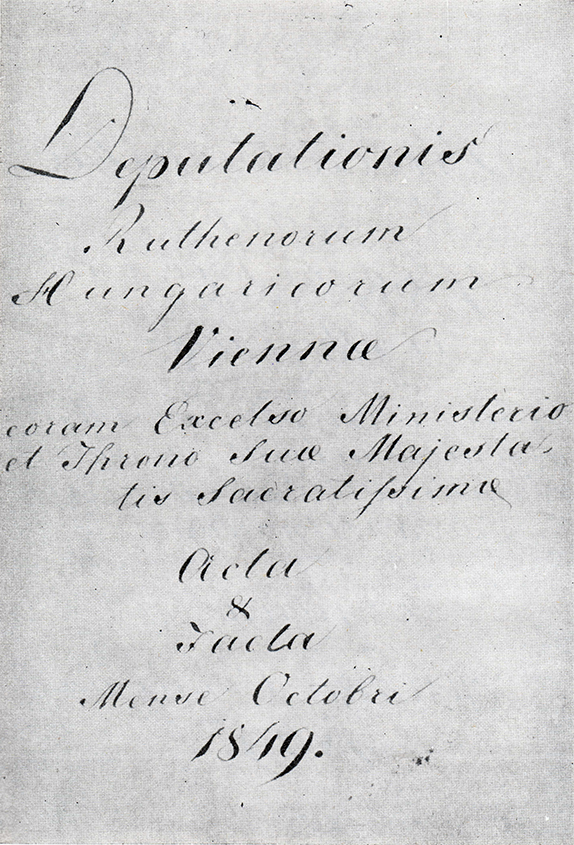 Deputationis
Ruthenorum
Hungaricorum
Viennæ
coram Excelso Ministerio
et Throno Suæ Majesta-
tis Sacratiſsimæ
Acta
&
Facta
Mense Octobri
1849.